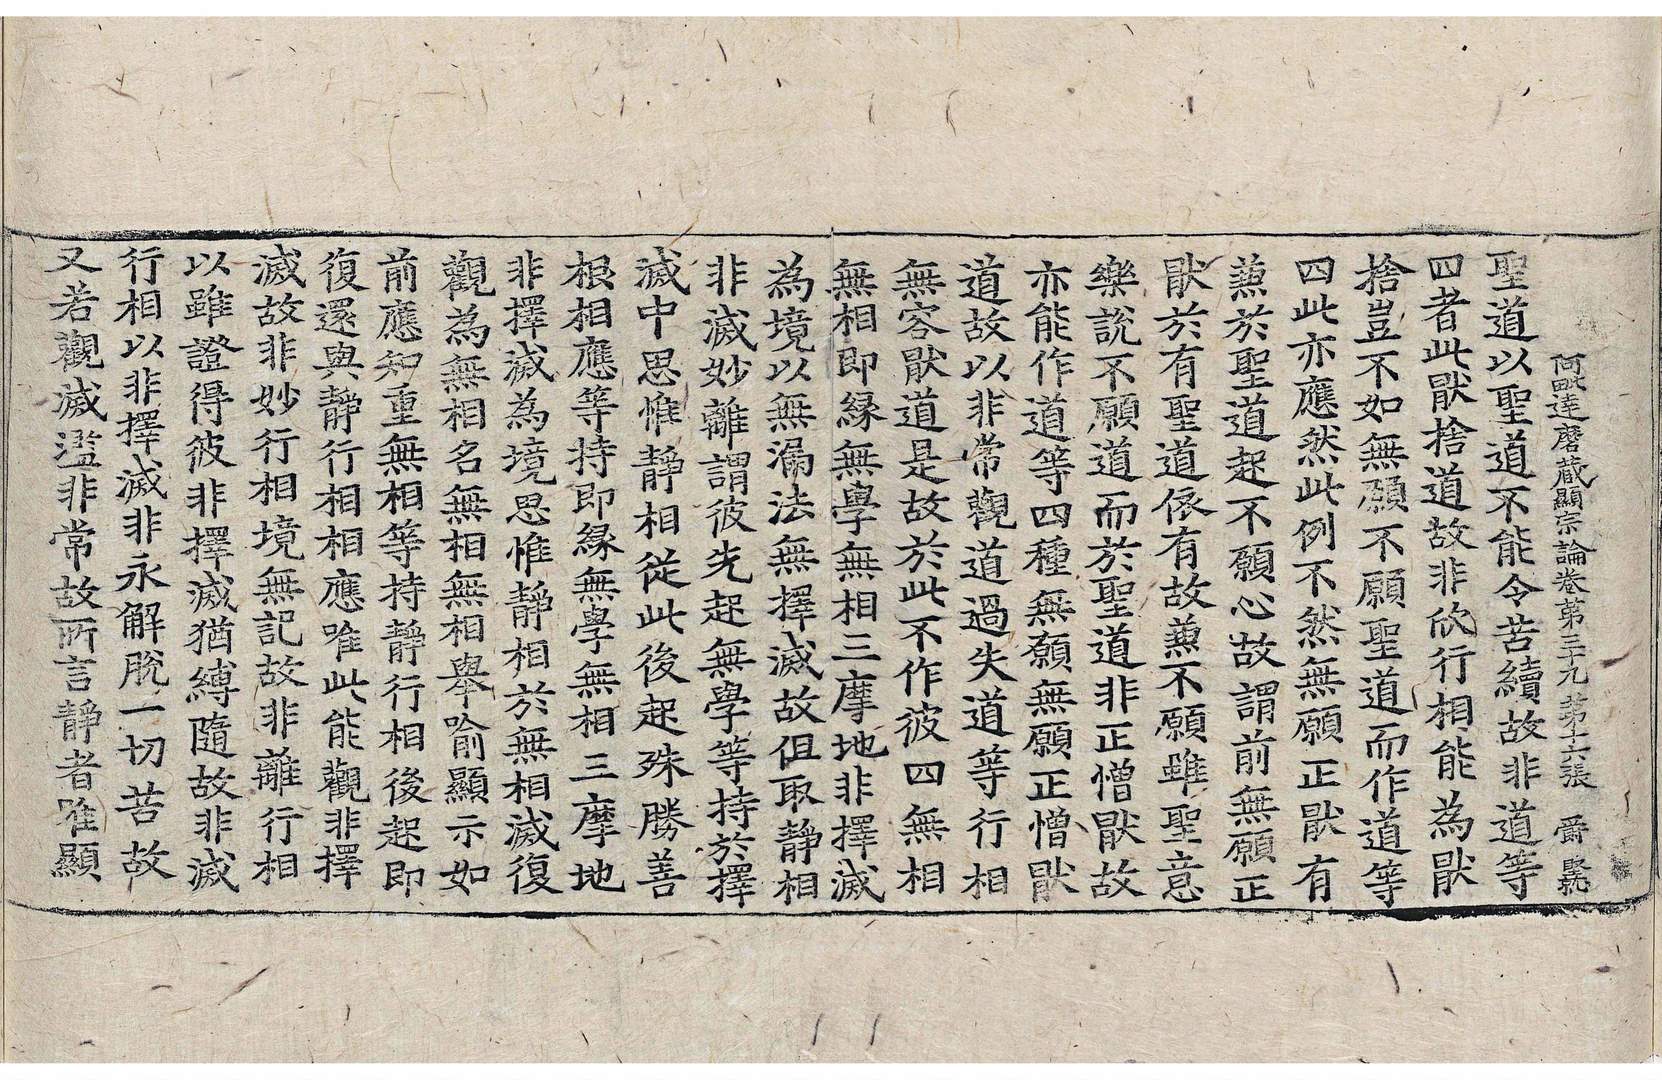 阿毗達磨藏顯宗論卷第三十九 第十六張 爵號
聖道以聖道不能令苦續故非道等
四者此猒捨道故非欣行相能為猒
捨豈不如無願不願聖道而作道等
四此亦應然此例不然無願正猒有
兼於聖道起不願心故謂前無願正
猒於有聖道依有故兼不願雖聖意
樂說不願道而於聖道非正憎猒故
亦能作道等四種無願無願正憎猒
道故以非常觀道過失道等行相
無容猒道是故於此不作彼四無相
無相即緣無學無相三摩地非擇滅
為境以無漏法無擇滅故但取靜相
非滅妙離謂彼先起無學等持於擇
滅中思惟靜相從此後起殊勝善
根相應等持即緣無學無相三摩地
非擇滅為境思惟靜相於無相滅復
觀為無相名無相無相舉喻顯示如
前應知重無相等持靜行相後起即
復還與靜行相相應唯此能觀非擇
滅故非妙行相境無記故非離行相
以雖證得彼非擇滅猶縛隨故非滅
行相以非擇滅非永解脫一切苦故
又若觀滅濫非常故所言靜者唯顯